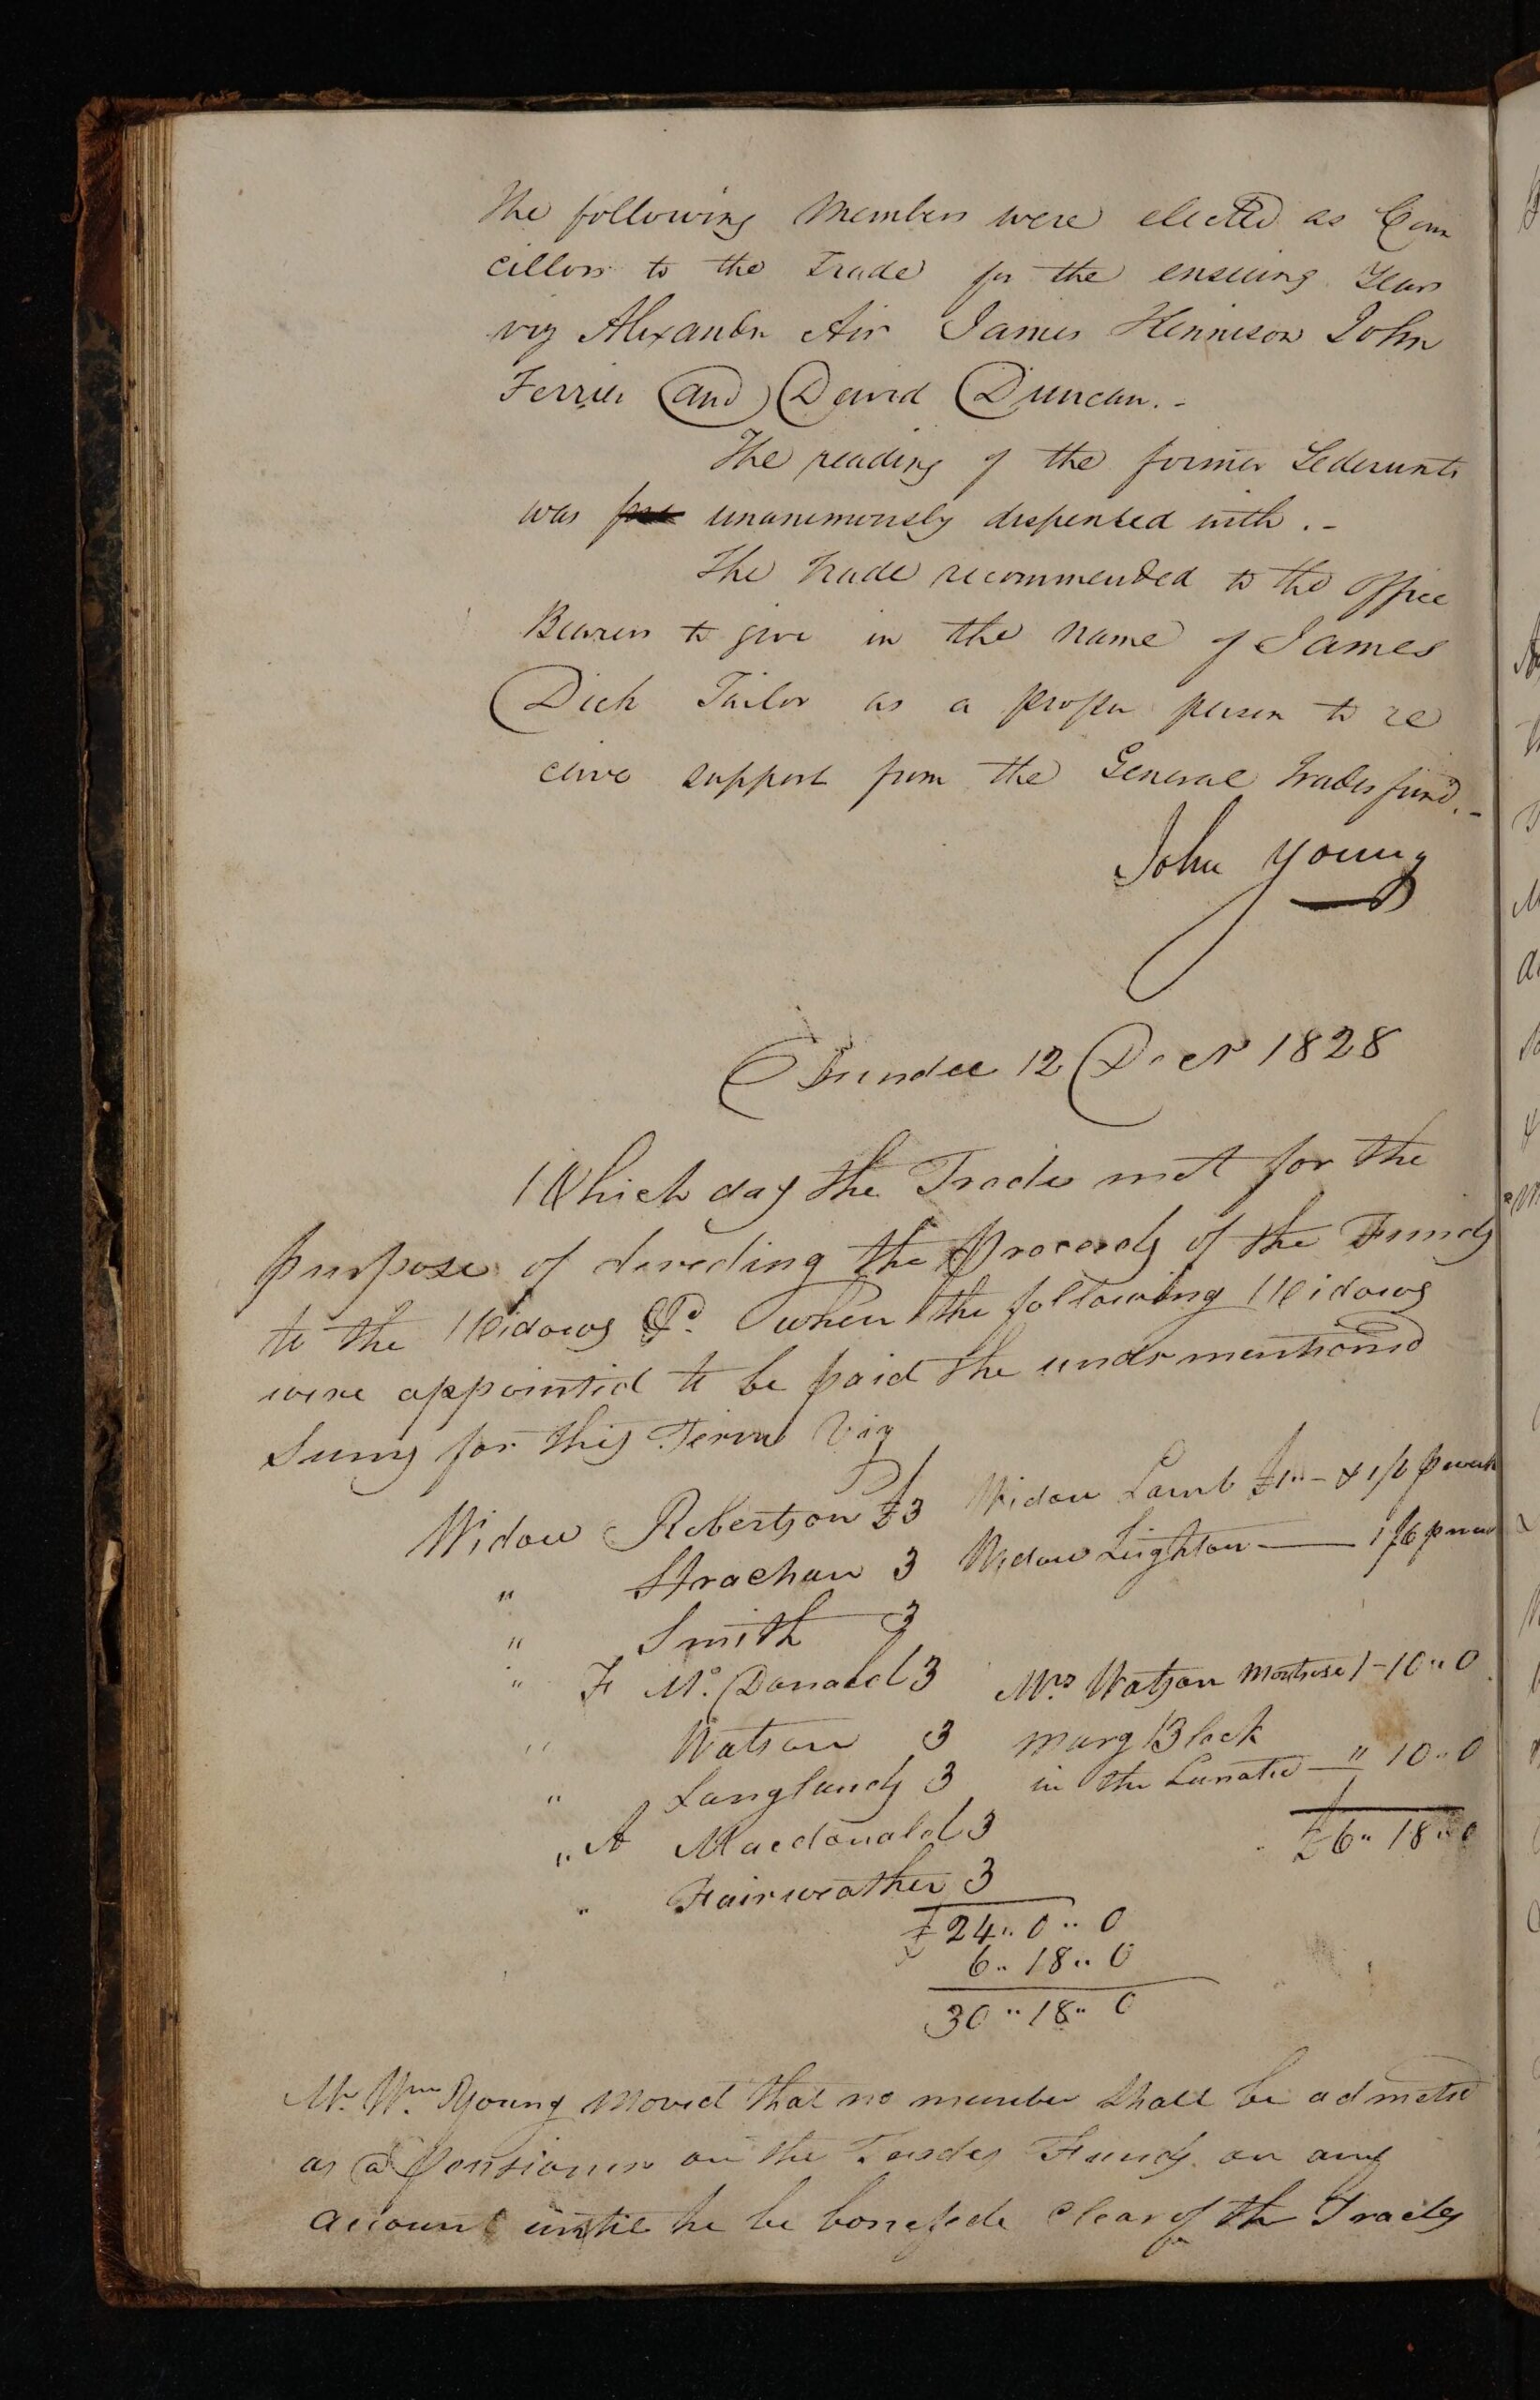 The following Members were elected as Coun
cillors to the Trade for the ensuing Year
viz Alexander Air James Kennison John
Ferrier and David Duncan.-
The reading of the former Sederunts
was unanimously dispensed with.-
The Trade recommended to the Office
Bearers to give in the name of James
Dick Tailor as a proper person to re
ceive support from the General Trades fund.-
John Young
Dundee 12 Decr 1828
Which day the Trade met for the
purpose of deveding the Proceeds of the Funds
to the Widows &c. when the following Widows
were appointed to be paid the undermentioned
Sums for this Term Viz
Widow Robertson £3 Widow Lamb £1"- & 1/6 p week
" Strachan 3 Widow Lighton — 1/6 p week
" Smith 3
" F Mc.Donald 3 Mrs Watson Montrose 1-10"0
" Watson 3 Marg Black
" Langlands 3 in the Lunatic — " 10"0
" A Macdonald 3 £6"18"0
" Fairweather 3
£24"0"0
6"18"0
30"18"0
Mr. Wm. Young Moved that no member shall be admeted
as a Pensioner on the Trades Funds on any
account untill he be bonefide clear of the Trades